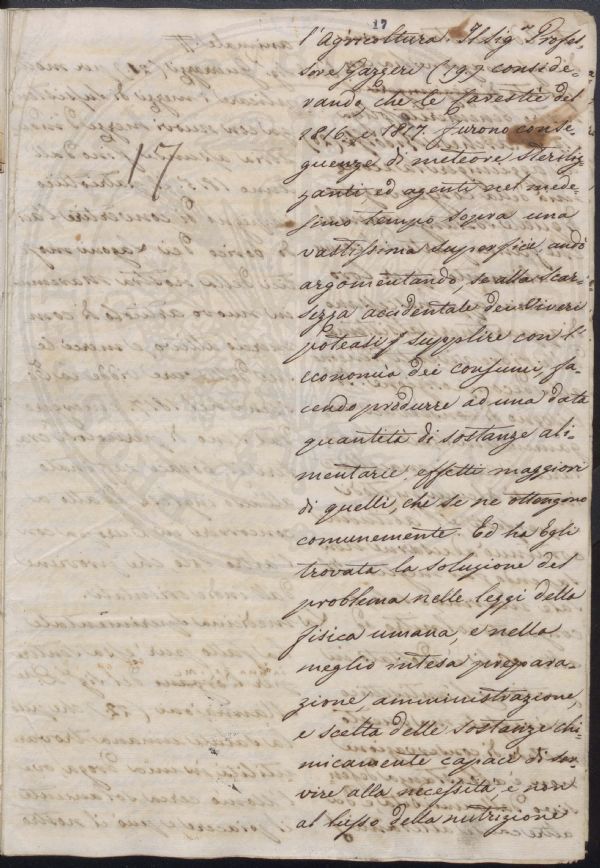 17
17
l'Agricoltura. Il Sig.r Profes-
sore Gazzeri (19.) conside-
rando, che le Carestie del
1816. e 1817. furono conse-
guenze di meteore steriliz-
zanti ed agenti nel mede-
simo tempo sopra una
vastissima superfice, andò
argomentando, se alla scar-
sezza accidentale dei Viveri
poteasi supplire con l'
economia dei consumi, fa-
cendo produrre ad una data
quantità di sostanze ali-
mentarie, effetti maggiori
di quelli, che se ne ottengono
comunemente. Ed ha Egli
trovata la soluzione del
problema nelle leggi della
fisica umana, e nella
meglio intesa prepara-
zione, amministrazione,
e scelta delle sostanze chi-
micamente capaci di ser-
vire alla necessità, e non
al lusso della nutrizione